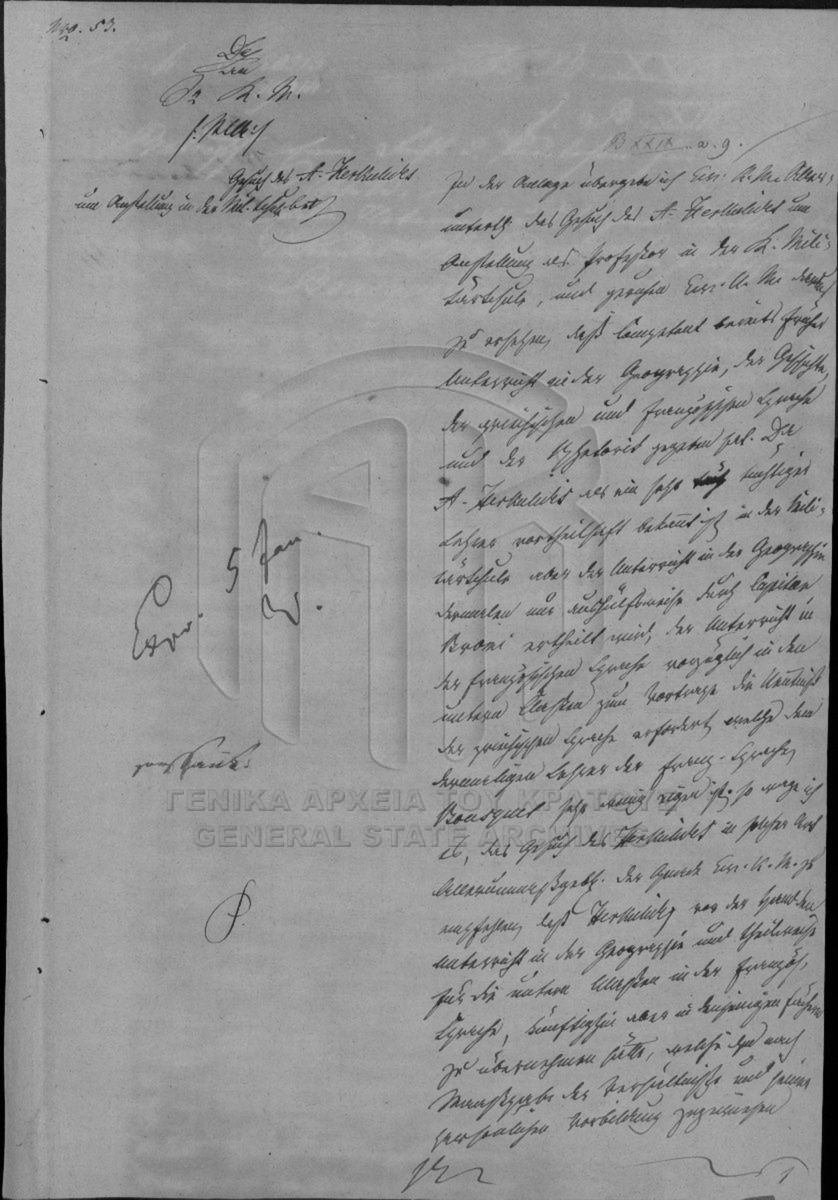 Nro. 53.
An
Sr K. M.
Gesuch des A. Herkulides
um Anstellung in der Mil. Schule betr.
B XXIX. a. 9.
In der Anlage übergebe ich Eur. K. M. Aller-
unterth. das Gesuch des A. Herkulides um
Anstellung als Professor in der K. Mili-
tärschule, und geruhen Eur. K. M. daraus
zu ersehen, daß Competent bereits früher
Unterricht in der Geographie, der Geschichte,
der griechischen und französischen Sprache
und der Rhetorik gegeben hat. Da
A. Herkulides als ein sehr tüchtiger
Lehrer vortheilhaft bekannt ist, in der Mili-
tärschule aber der Unterricht in der Geographie
dermalen nur aushülfsweise durch Capitän
Bromi ertheilt wird, der Unterricht in
der französischen Sprache vorzüglich in den
untern Klassen zum Vortrage die Kenntniß
der griechischen Sprache erfordert, welche dem
dermaligen Lehrer der franz. Sprache,
Bousquet sehr wenig eigen ist, so wage ich
es, das Gesuch des Herkulides in solcher Art
der Gnade Eur. K. M. zu
empfehlen, daß Herkulides vor der Hand den
Unterricht in der Geographie und theilweise
für die untern Klassen in der französ.
Sprache, künftighin aber in denjenigen Fächern
zu übernehmen hätte, welche ihm nach
Maasgabe der Verhältnisse und seiner
persönlichen Vorbildung zugewiesen
Exp. 5 Jan.
ΓΕΝΙΚΑ ΑΡΧΕΙΑ ΤΟΥ ΚΡΑΤΟΥΣ
GENERAL STATE ARCHIVES